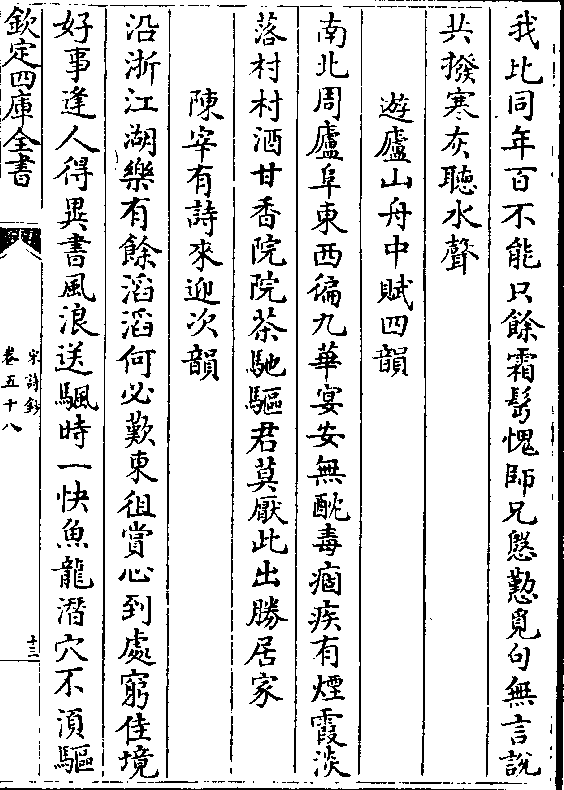 我比同年百不能只餘霜髩愧師兄慇懃覓句無言說
共撥寒灰聽水聲
遊廬山舟中賦四韻
南北周廬阜東西徧九華宴安無酖毒痼疾有煙霞淡
落村村酒甘香院院茶馳驅君莫厭此出勝居家
陳宰有詩來迎次韻
沿浙江湖樂有餘滔滔何必歎東徂賞心到處窮佳境
好事逢人得異書風浪送颿時一快魚龍潛穴不湏驅
欽定四庫全書
宋詩鈔
卷五十八
十三